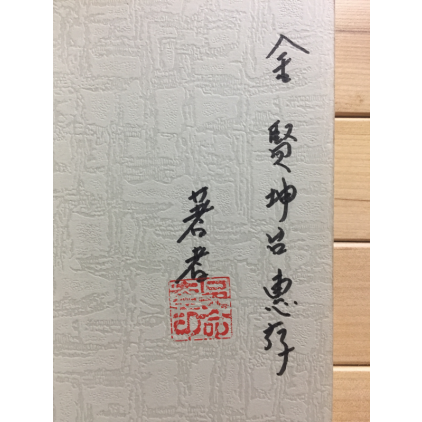 金 賢坤呂惠存
著者